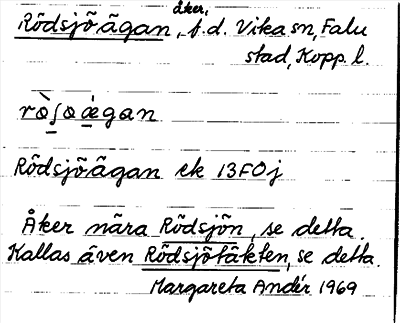 åker,
Rödsjöägan, f.d. Vika sn, Falu
stad, Kopp. l.
rø̀ʃøæ̀gan
Rödsjöägan ek 13F0j
Åker nära Rödsjön, se detta.
Kallas även Rödsjötäkten, se detta.
Margareta Andér 1969